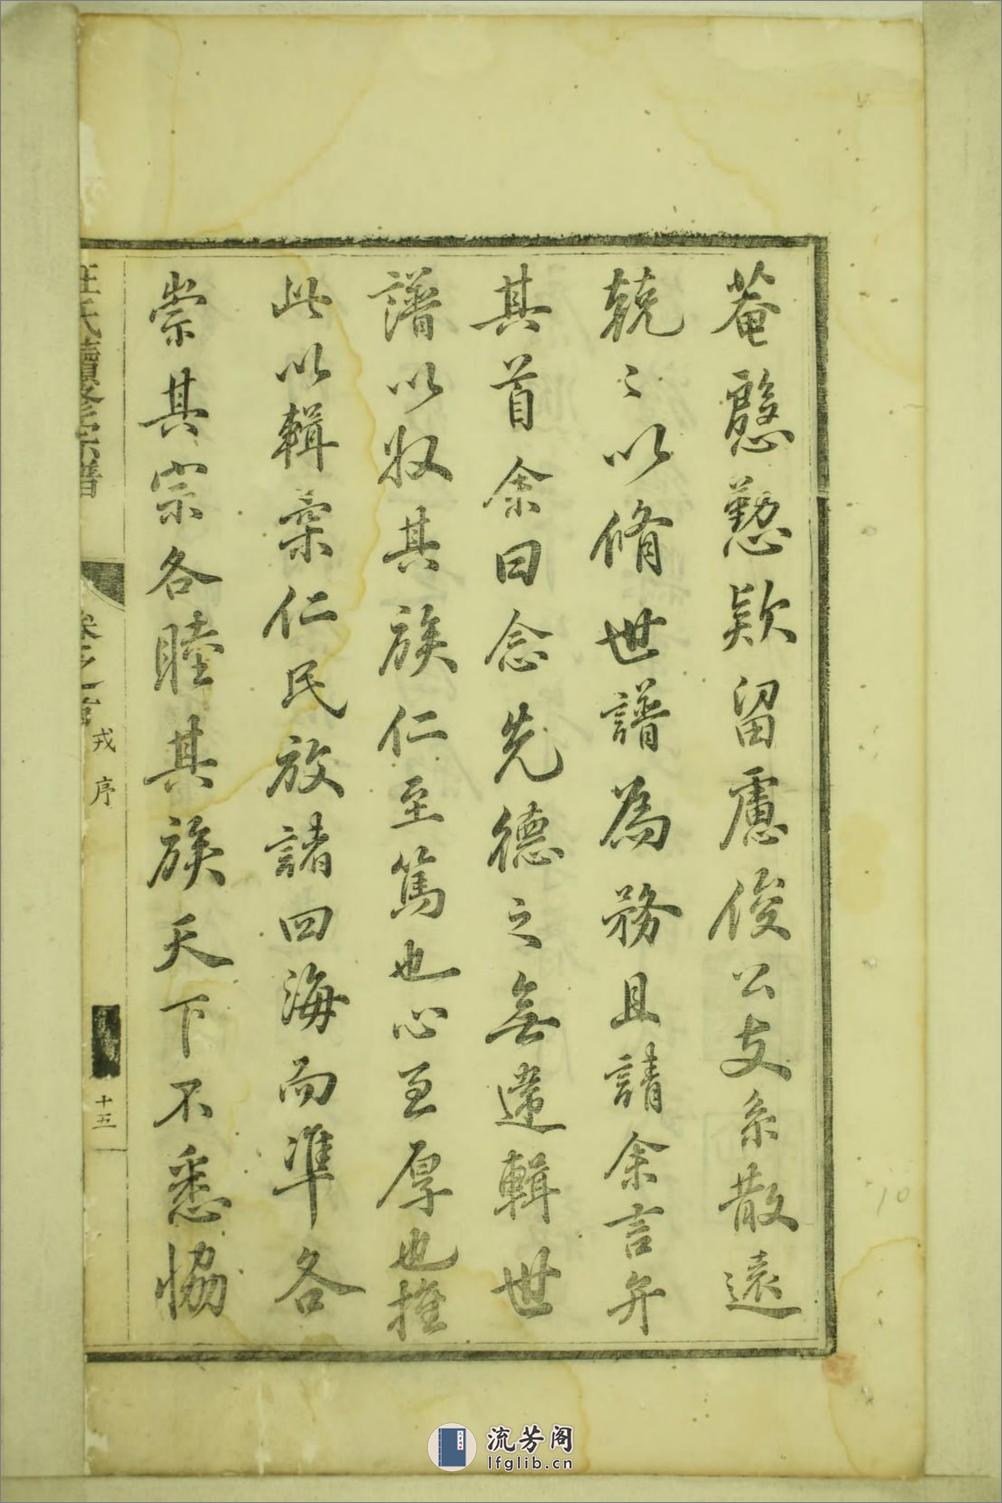 菴慇懃欵留慮俊公支系散遠
兢〻以脩世譜為務且請余言弁
其首余曰念先德之無違輯世
譜以收其族仁至篤也心至厚也推
此以輯橐仁民放諸四海而準各
崇其宗各睦其族天下不悉協
汪氏續修宗譜
卷之首
戎序
十五
10
流芳阁
lfglib.cn